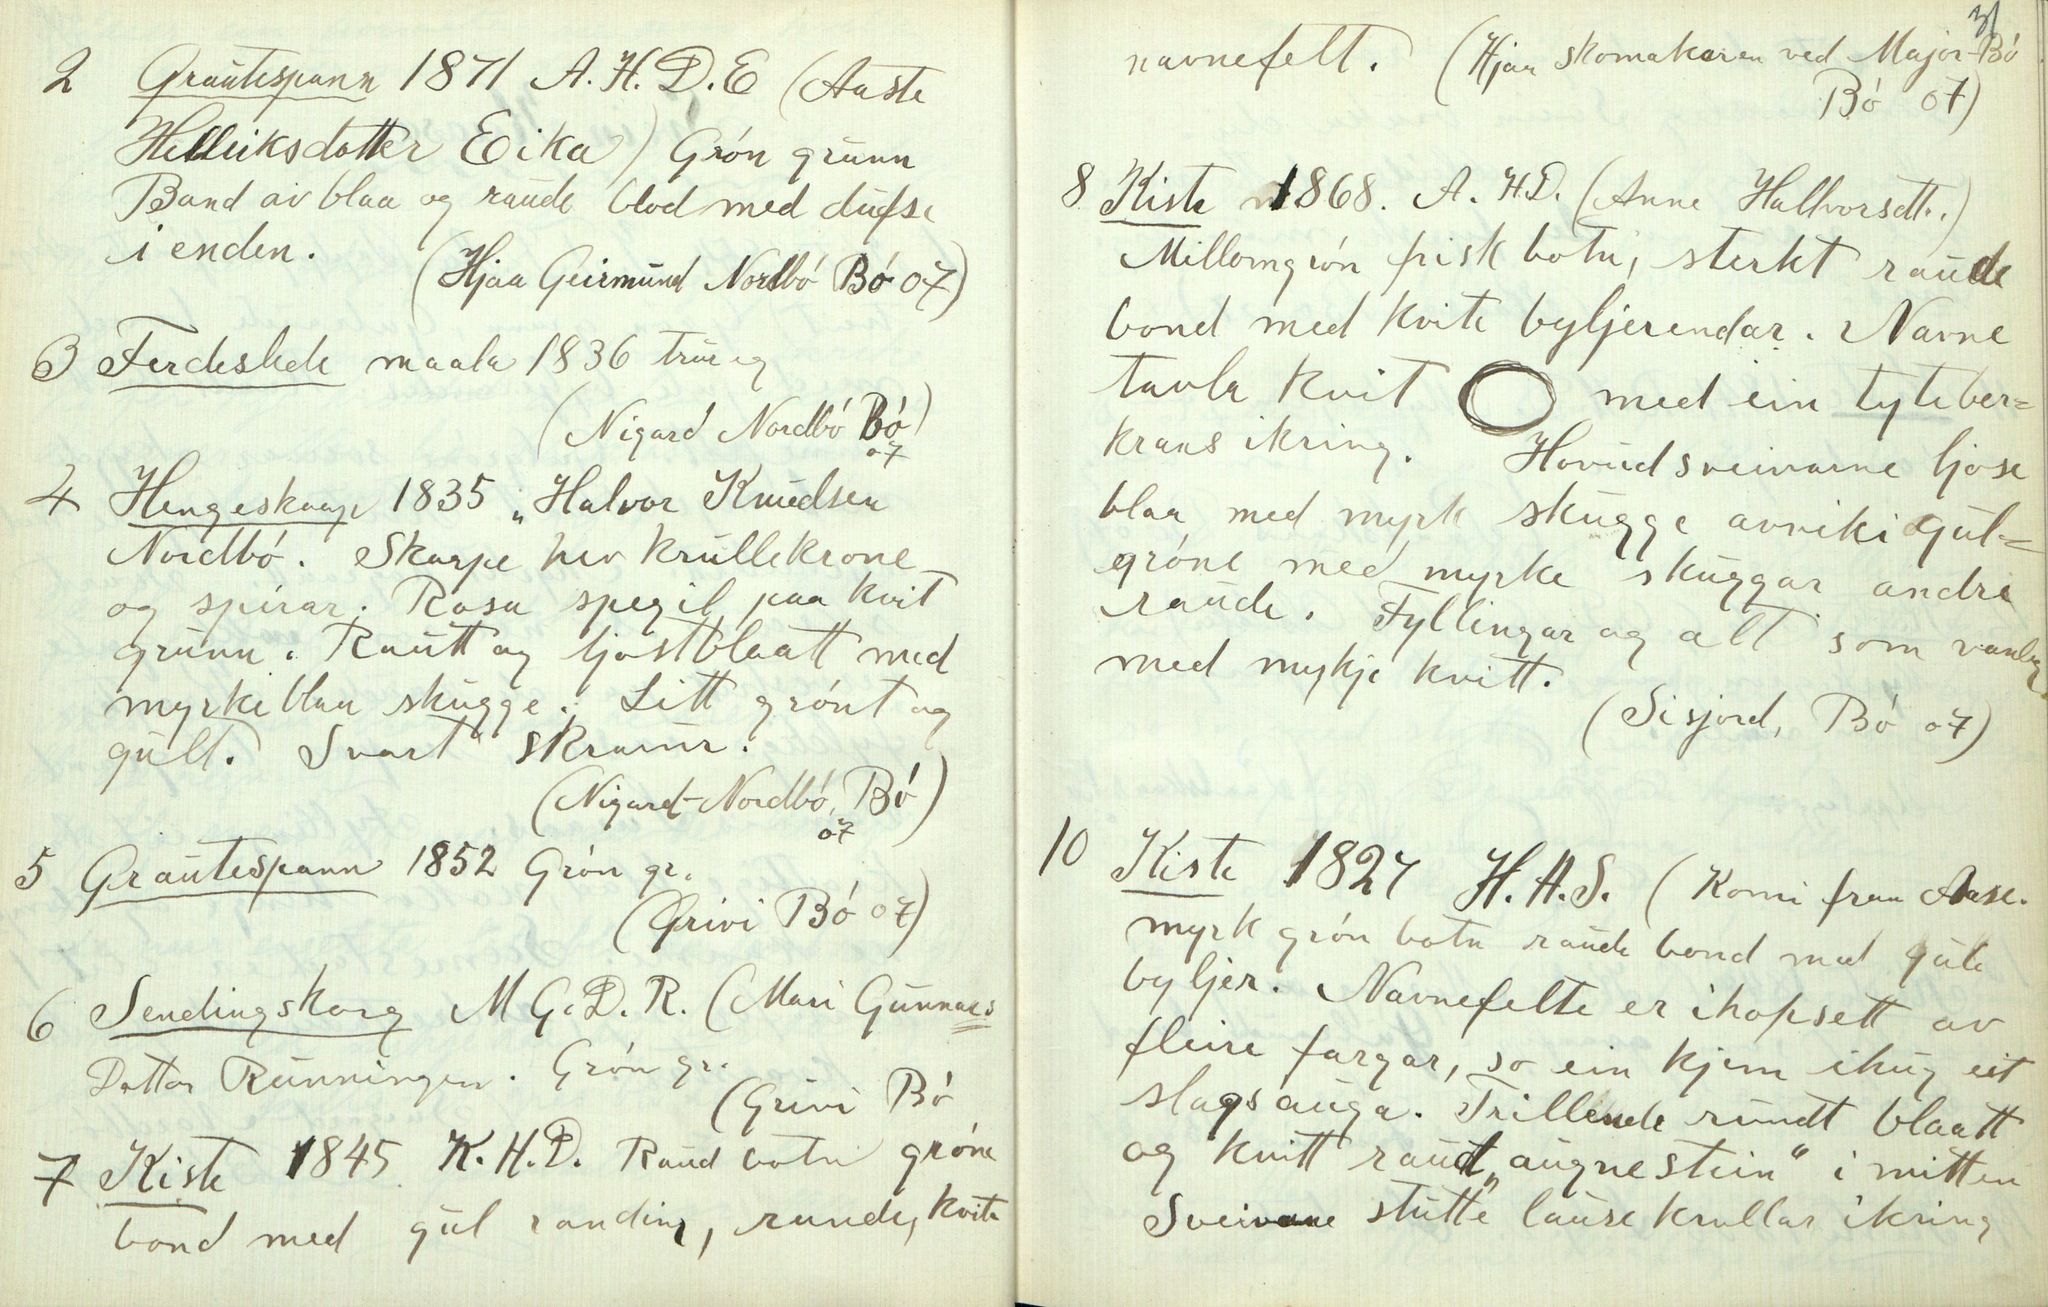 2 Grautespann 1871 A. H. D. E (Aaste
Helliksdotter Eika) Grón grunn
Band av blaa og raude blod med dufse
i enden.
(Hjaa Geirmund Nordbó Bó 07)
3 Ferdeslede maala 1836 trur eg
(Nigard Nordbó Bó)
07
4 Hengeskaap 1835 „Halvor Knudsen
Nordbó. Skarpe hev krullekrone
og spirar. Rosa spegil paa kvit
grunn. Rautt og ljostblaatt med
myrkeblaa skugge. Litt grónt og
gult. Svart skraur.
(Nigard-Nordbó, Bó)
07
5 Grautespann 1852 Grón gr.
(Grivi Bó 07)
6 Sendingskorg M G. D. R. (Mari Gunnars
Dotter Runningen. Grón gr.
(Grivi Bó
7 Kiste 1845 K. H. D. Raud botn gróne
bond med gul randing, runde, kvite
31
navnefelt. (Hjaa skomakaren ved Major-Bó
Bó 07)
8 Kiste 1868. A. H. D. (Anne Hallvorsdtt.)
Millomgrón frisk botn, sterkt raude
bond med kvite byljerendar. Navne
tavla kvit med ein tyteber=
krans ikring. Hovudsveivarne ljose
blaa med myrk skugge avviki gul=
gróne med myrke skuggar andre
raude. Fyllingar og alt som vanleg
med mykje kvitt.
(Sisjord, Bó 07)
10 Kiste 1827 H. A. S. (Komi fraa Aase.
myrk grón botn raude bond med gule
byljer. Navnefelte er ihopsett av
fleire fargar, so ein kjem ihug eit
slags auga. Trillende rundt blaatt
og kvitt raud „augnestein“ i mitten
Sveivane stutte lause krullar ikring